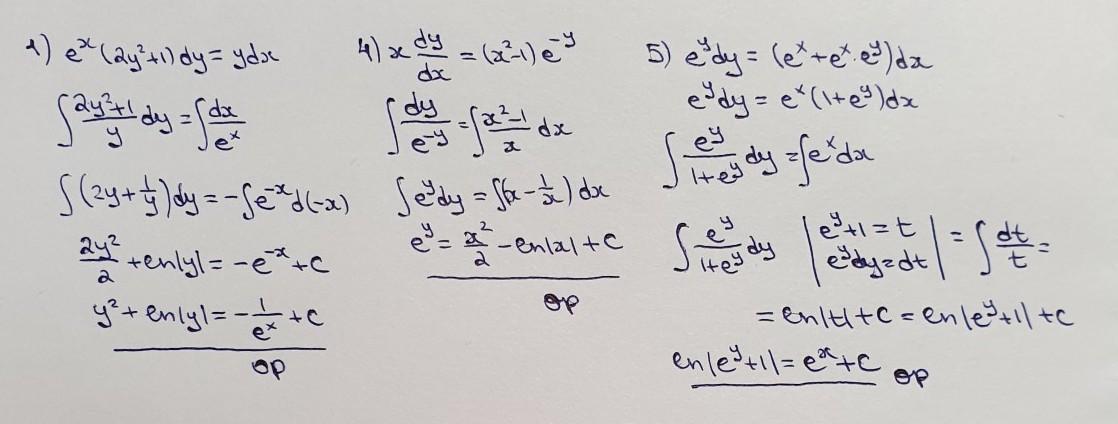 1) eˣ(2y²+1)dy = ydx
∫ (2y²+1)/y dy = ∫ dx/eˣ
∫(2y + 1/y)dy = -∫e⁻ˣd(-x)
2y²/2 + ln|y| = -e⁻ˣ + C
y² + ln|y| = -1/eˣ + C
OP
4) x dy/dx = (x²-1)e⁻ʸ
∫ dy/e⁻ʸ = ∫ (x²-1)/x dx
∫eʸdy = ∫(x - 1/x)dx
eʸ = x²/2 - ln|x| + C
OP
5) eʸdy = (eˣ+eˣ·eʸ)dx
eʸdy = eˣ(1+eʸ)dx
∫ eʸ/(1+eʸ) dy = ∫eˣdx
∫ eʸ/(1+eʸ) dy | eʸ+1=t eʸdy=dt | = ∫ dt/t =
= ln|t|+C = ln|eʸ+1|+C
ln|eʸ+1| = eˣ+C OP